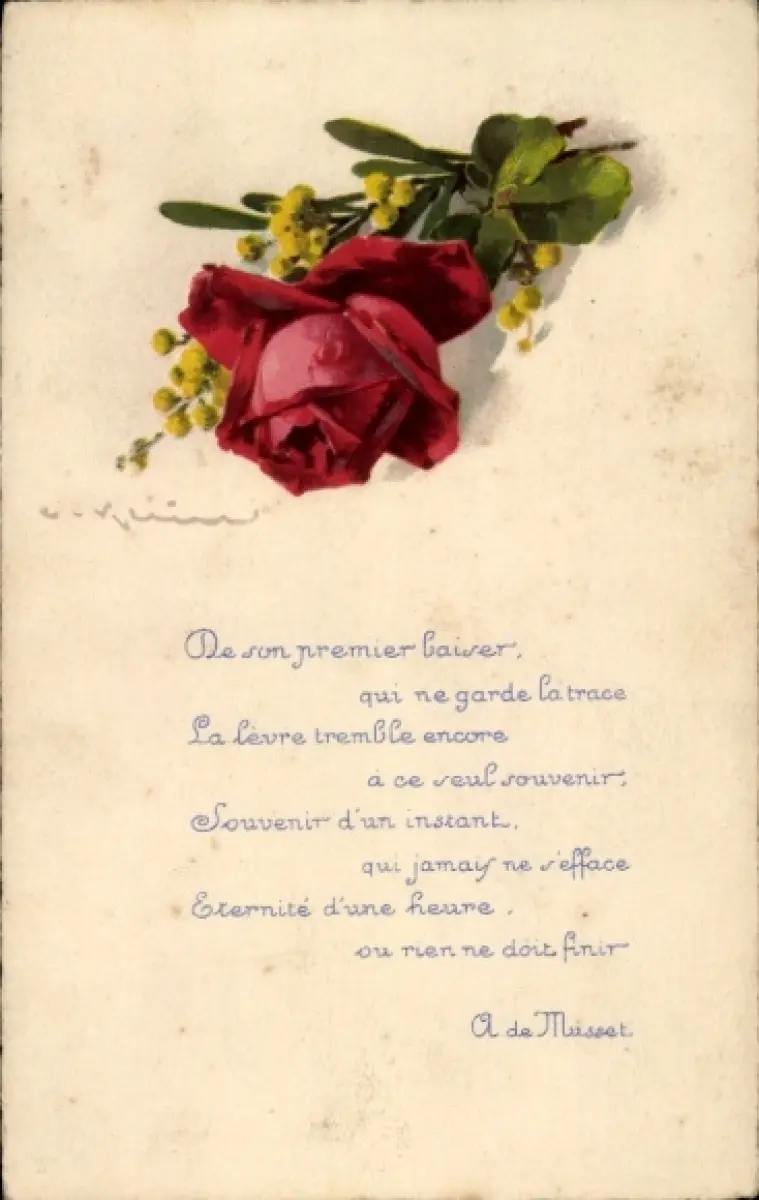 C. Klein
De son premier baiser,
qui ne garde la trace
La lèvre tremble encore
à ce seul souvenir,
Souvenir d'un instant,
qui jamais ne s'efface
Eternité d'une heure,
ou rien ne doit finir
A de Musset